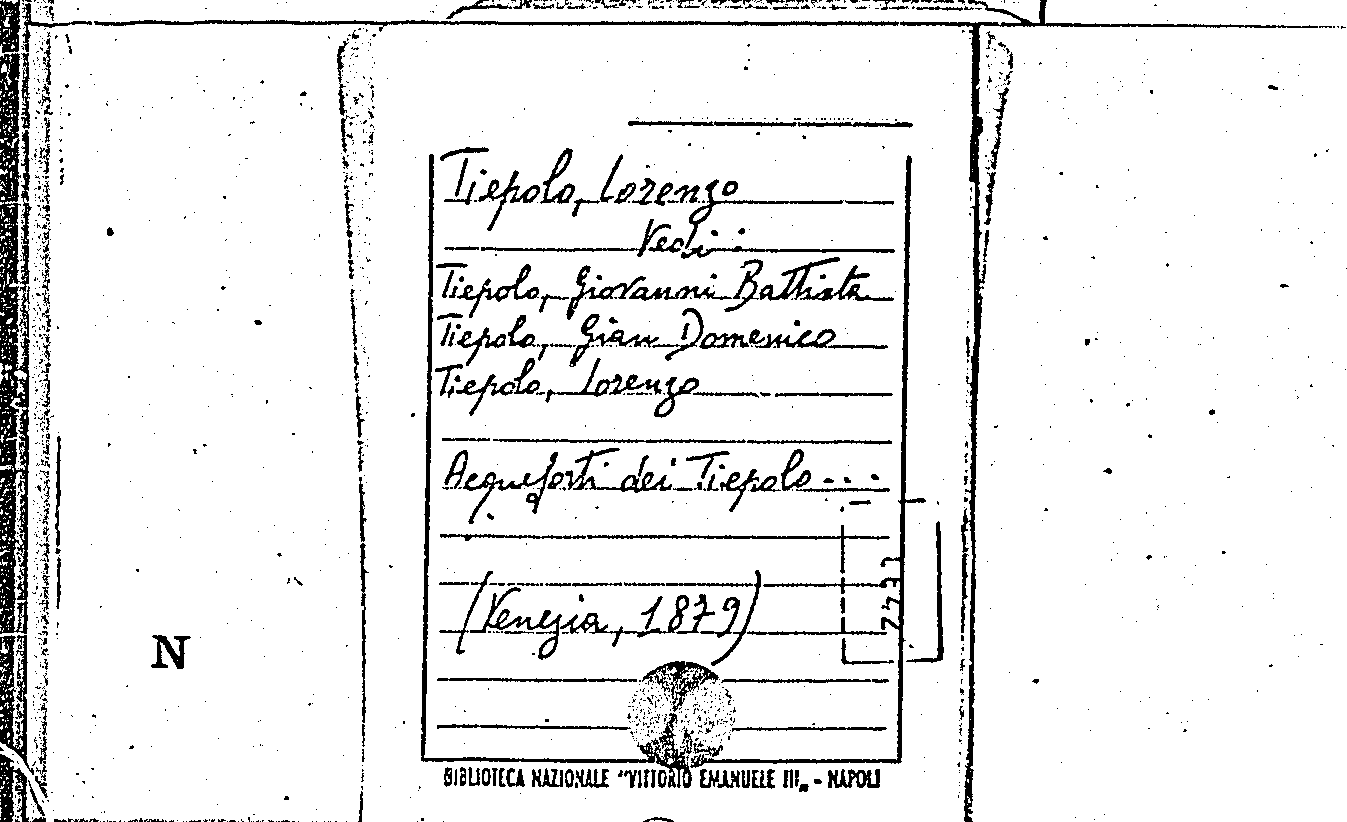 Tiepolo, Lorenzo
Vedi:
Tiepolo, Giovanni Battista
Tiepolo, Gian Domenico
Tiepolo, Lorenzo
Acqueforti dei Tiepolo...
(Venezia, 1879)
N
BIBLIOTECA NAZIONALE "VITTORIO EMANUELE III„ - NAPOLI